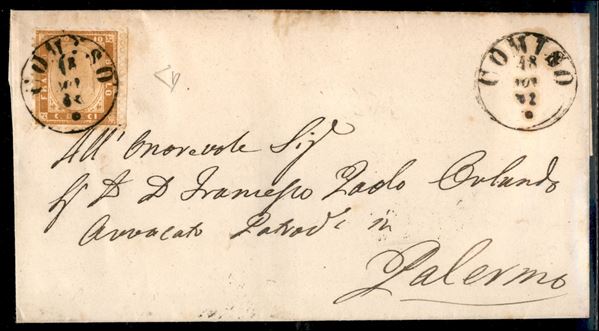 COMISO
18
62
COMISO
18
NOV
62
All' Onorevole Sig.
D D Francesco Paolo Orlando
Avvocato in
Palermo